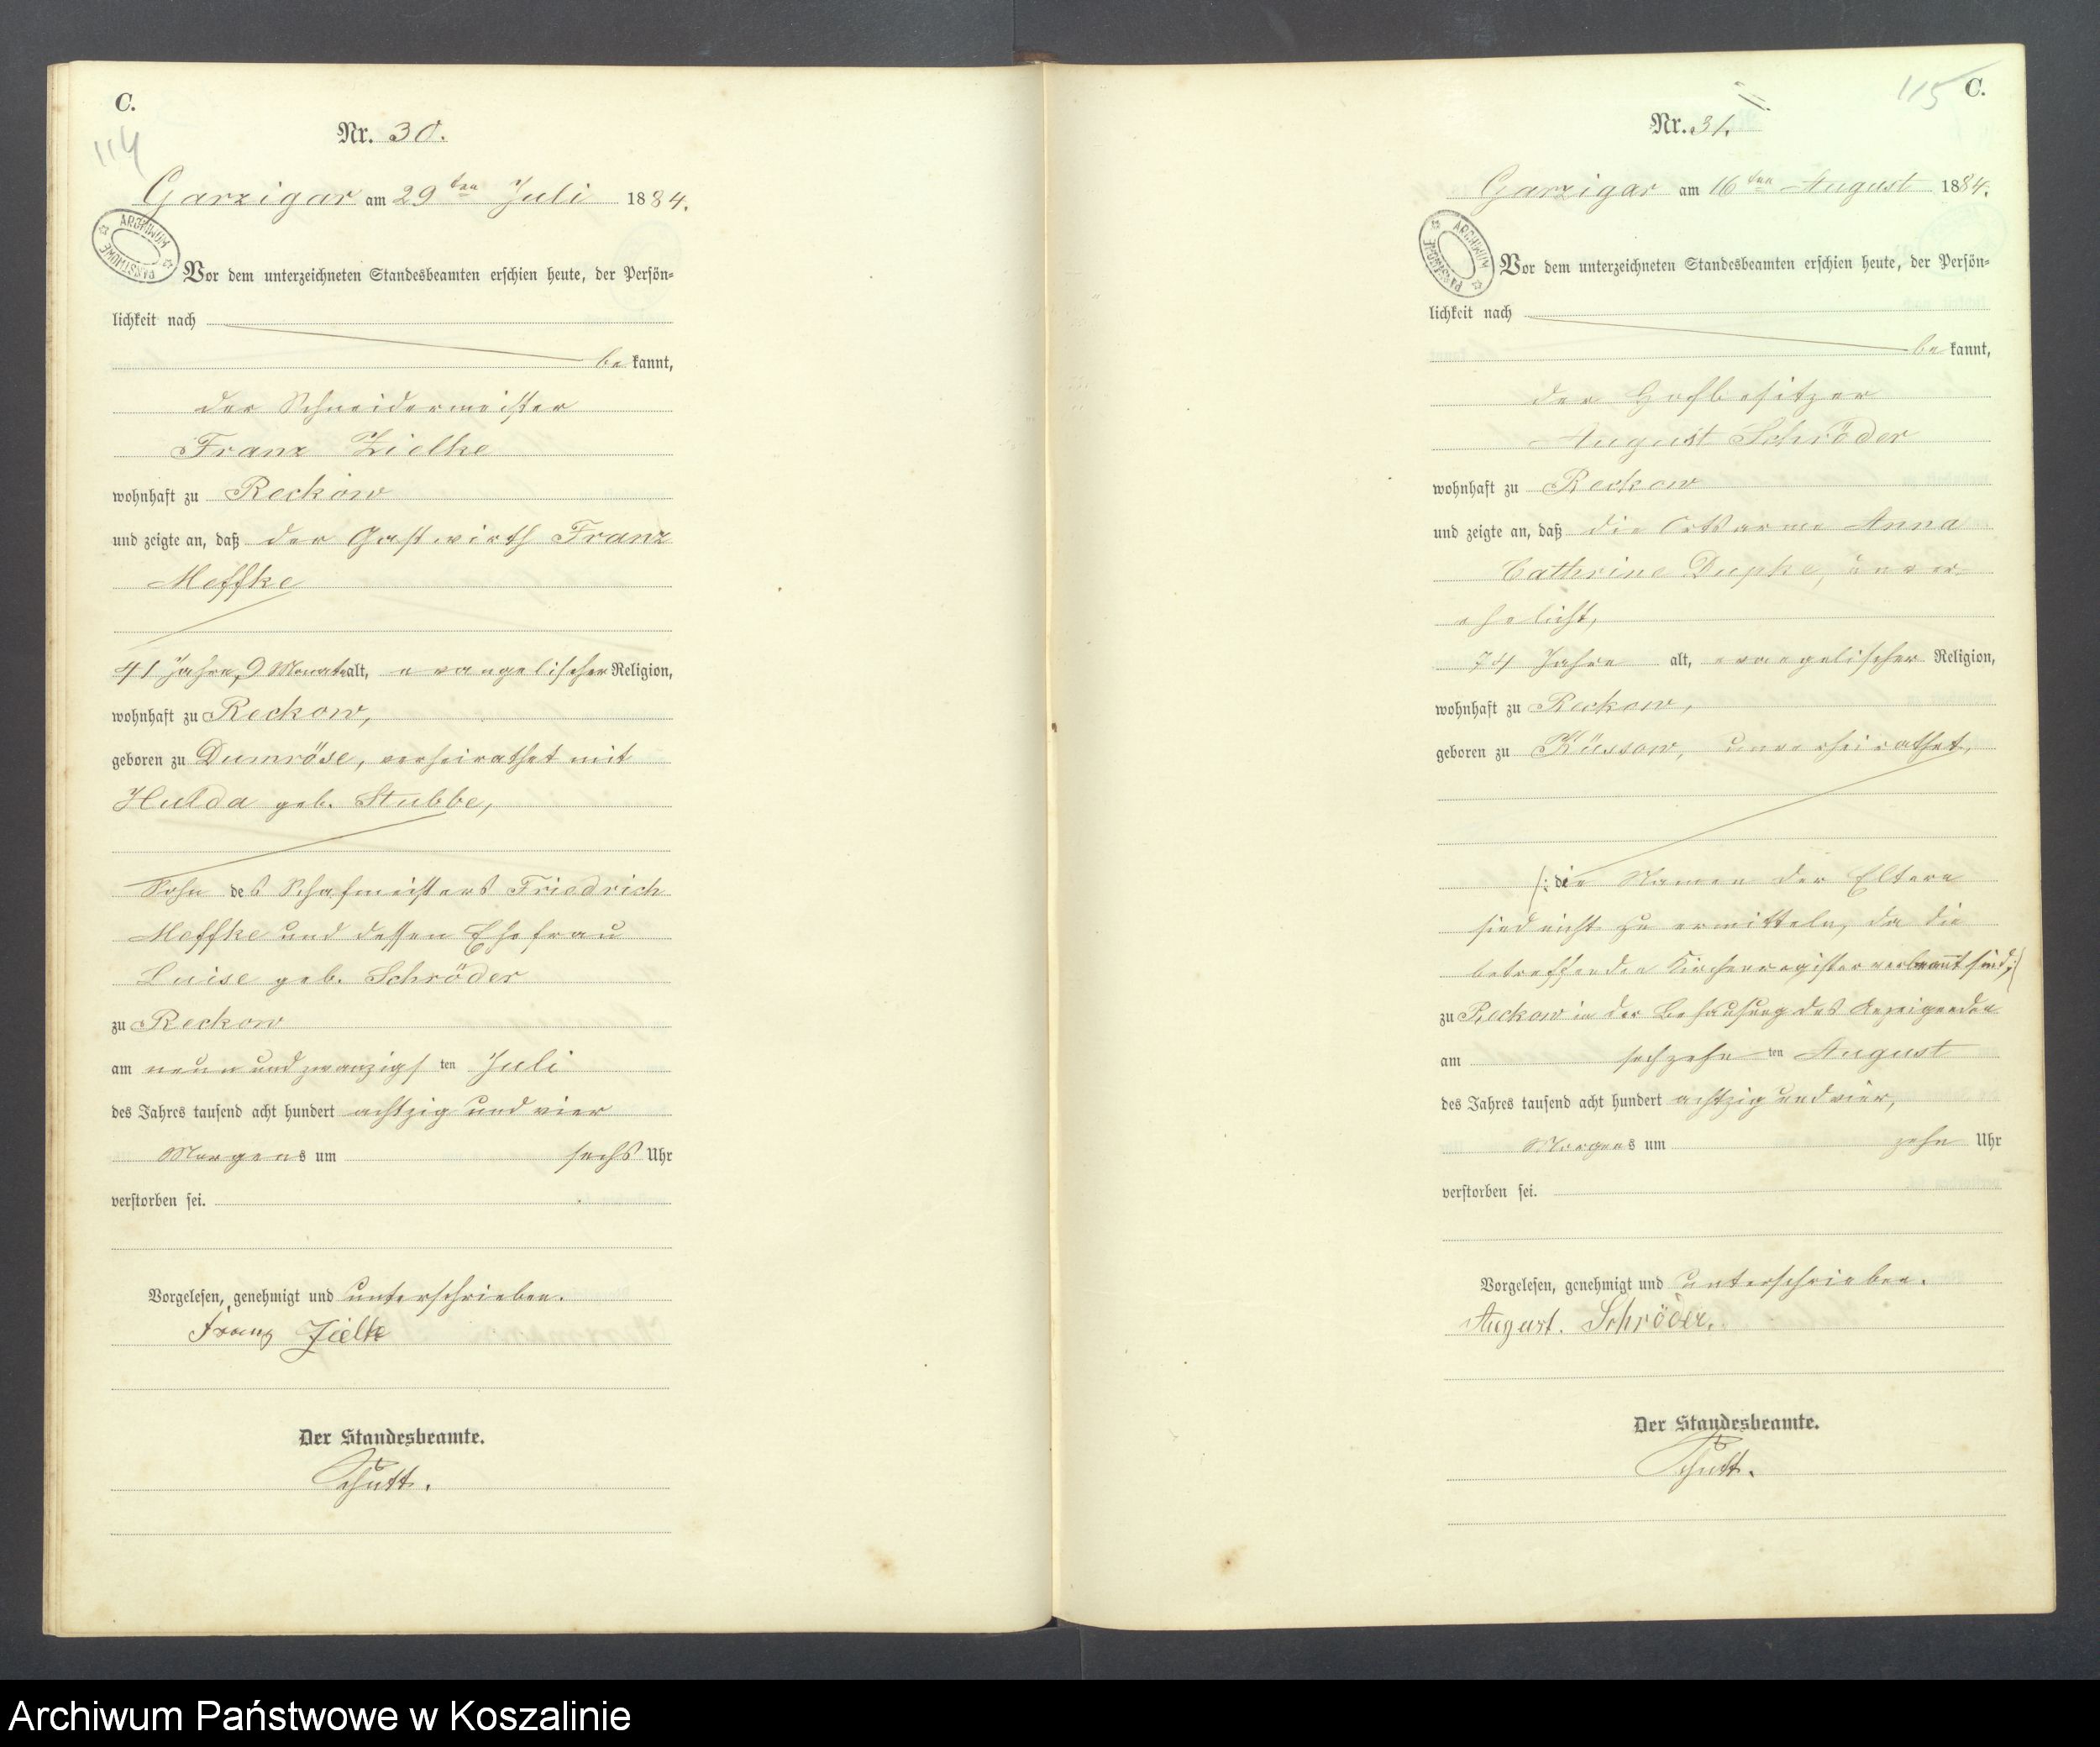 C.
114
Nr. 30.
Garzigar am 29ten Juli 1884.
ARCHIWUM PAŃSTWOWE
Vor dem unterzeichneten Standesbeamten erschien heute, der Persön=
lichkeit nach
be kannt,
der Schneidermeister
Franz Zielke
wohnhaft zu Reckow
und zeigte an, daß der Gastwirth Franz
Meffke
41 Jahre, 9 Monate alt, evangelischer Religion,
wohnhaft zu Reckow,
geboren zu Dumröse, verheirathet mit
Hulda geb. Stubbe,
Sohn des Schafmeisters Friedrich
Meffke und dessen Ehefrau
Luise geb. Schröder
zu Reckow
am neun und zwanzigs ten Juli
des Jahres tausend acht hundert achtzig und vier
Morgens um sechs Uhr
verstorben sei.
Vorgelesen, genehmigt und unterschrieben.
Franz Zielke
Der Standesbeamte.
Schutt.
115
C.
Nr. 31.
Garzigar am 16ten August 1884.
ARCHIWUM PAŃSTWOWE
Vor dem unterzeichneten Standesbeamten erschien heute, der Persön=
lichkeit nach
be kannt,
der Hofbesitzer
August Schröder
wohnhaft zu Reckow
und zeigte an, daß die Ortsarme Anna
Cathrine Dupke, unver-
ehelicht,
74 Jahre alt, evangelischer Religion,
wohnhaft zu Reckow,
geboren zu Küssow, unverheirathet,
(: die Namen der Eltern
sind nicht zu ermitteln, da die
betreffenden Kirchenregister verbrannt sind,:)
zu Reckow in der Behausung des Anzeigenden
am sechzehn ten August
des Jahres tausend acht hundert achtzig und vier,
Morgens um zehn Uhr
verstorben sei.
Vorgelesen, genehmigt und unterschrieben.
August. Schröder.
Der Standesbeamte.
Schutt.
Archiwum Państwowe w Koszalinie